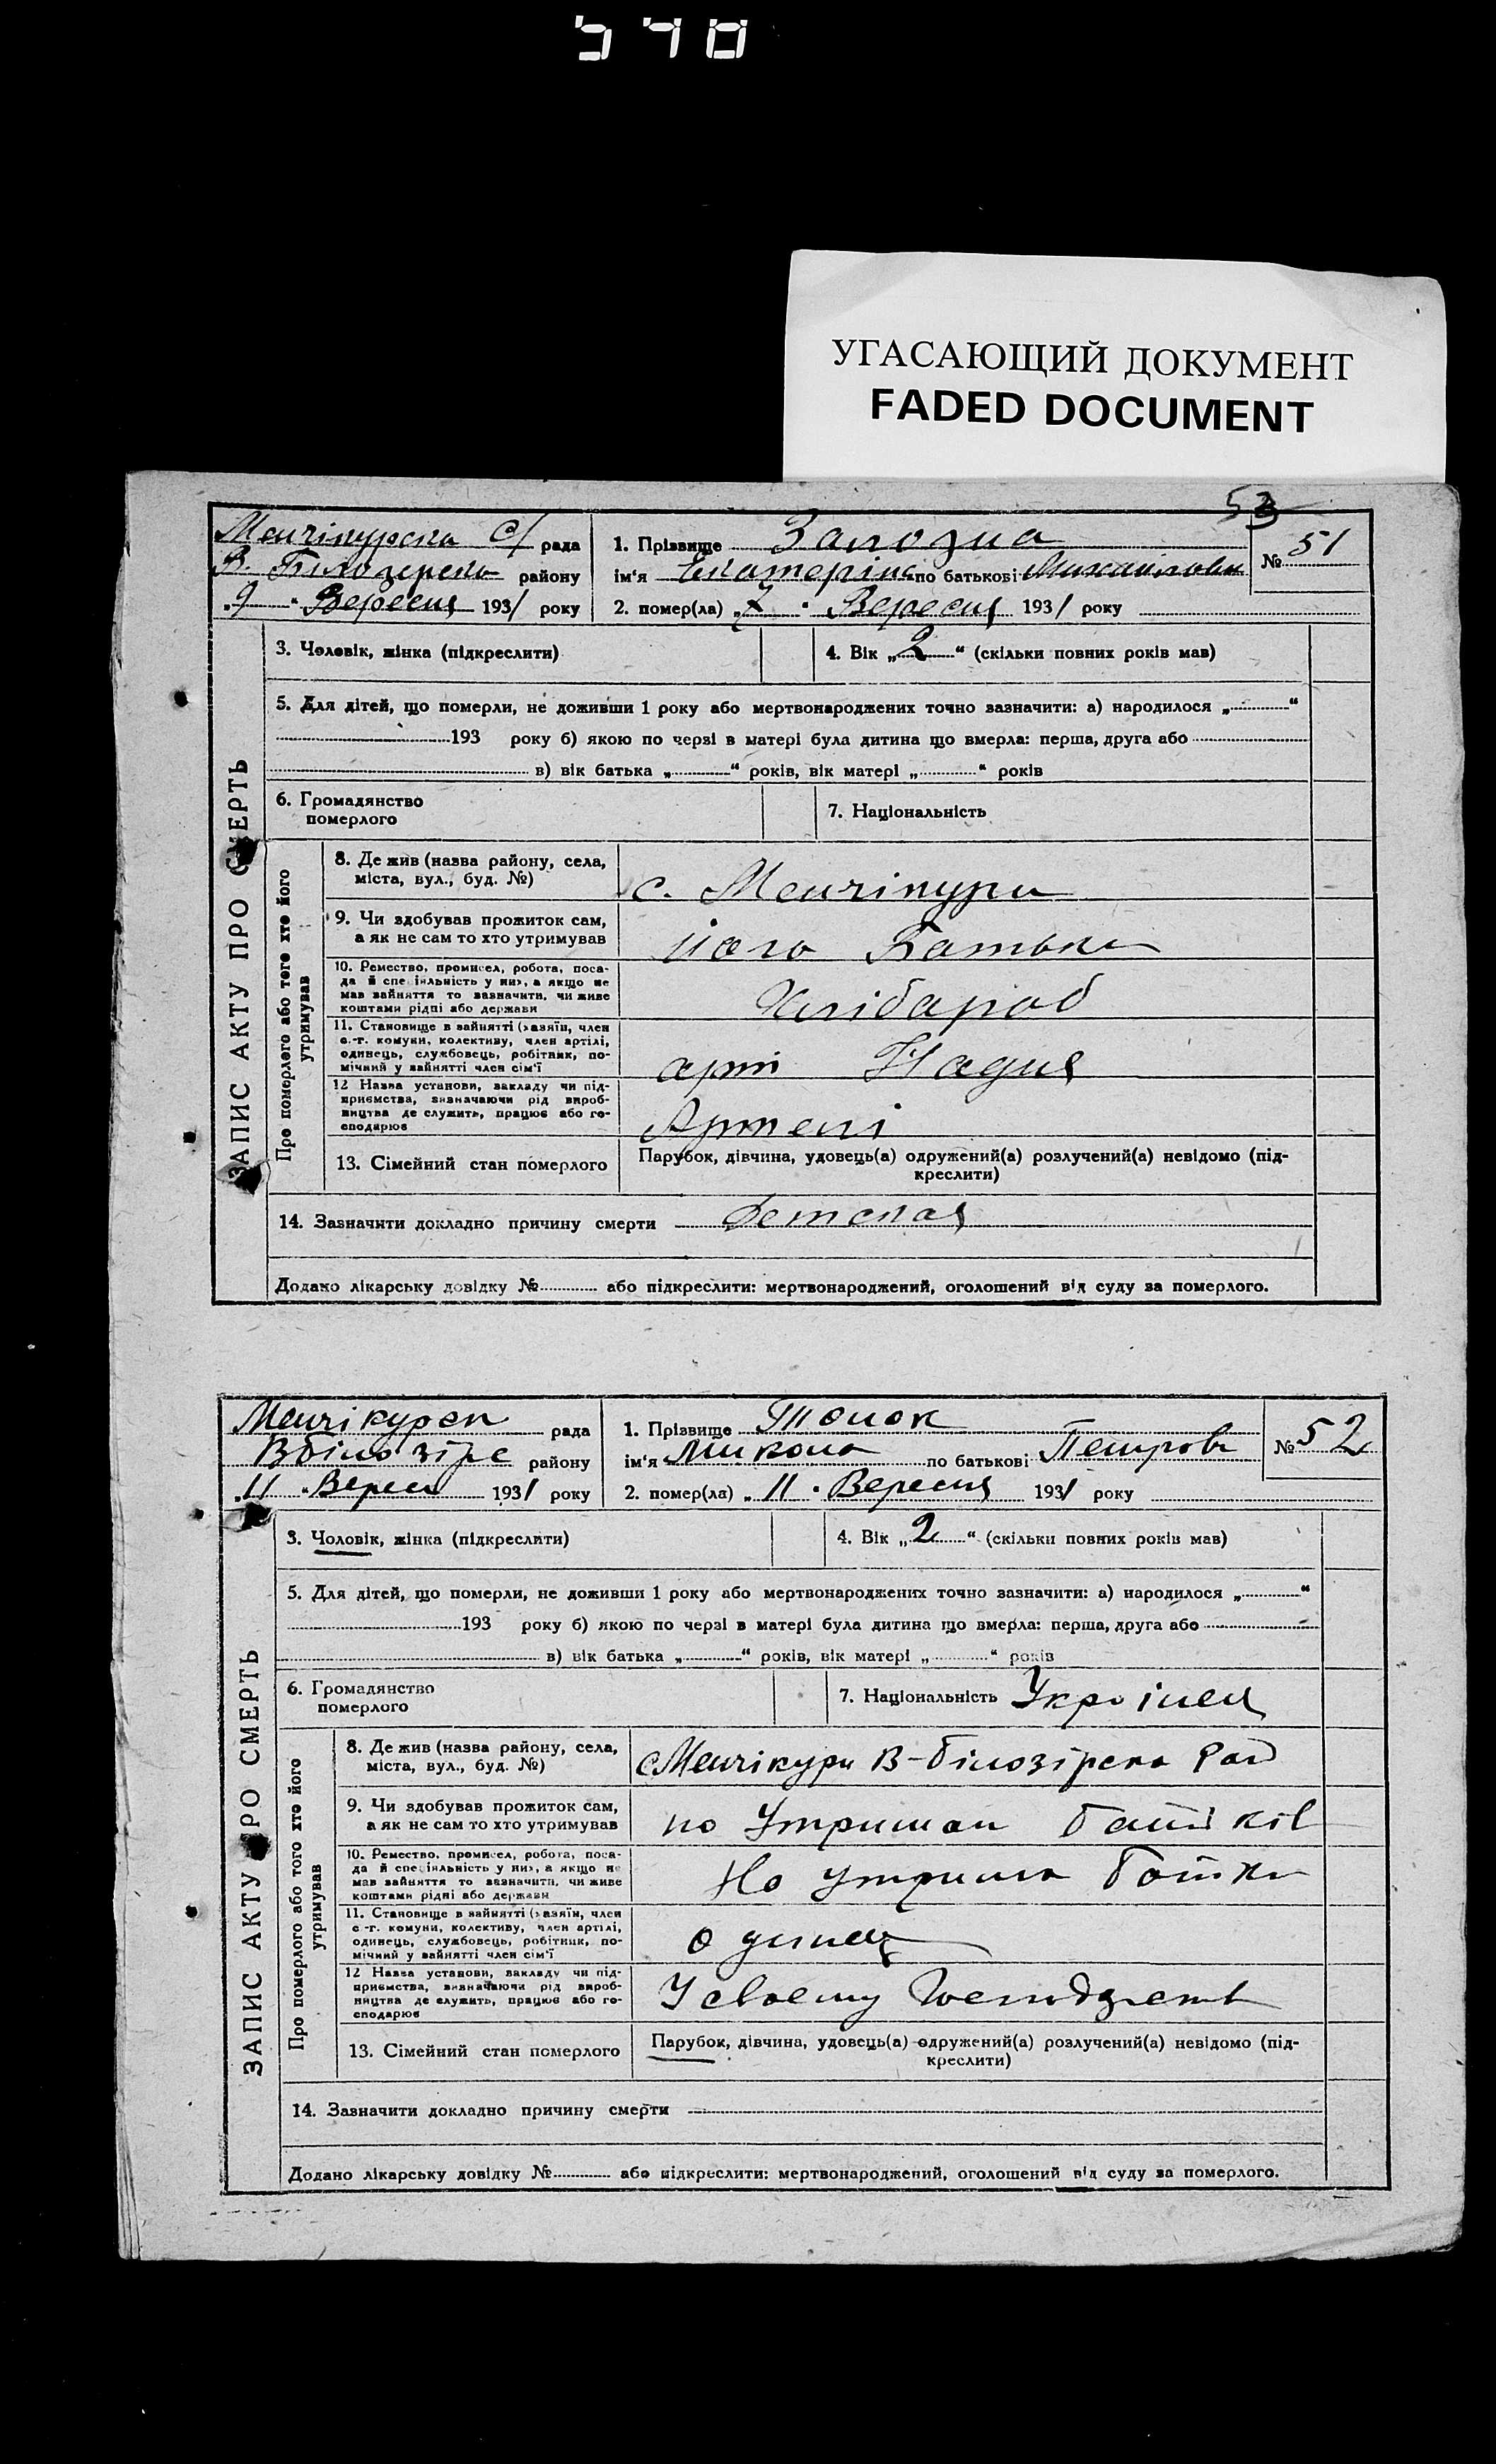 570
УГАСАЮЩИЙ ДОКУМЕНТ
FADED DOCUMENT
53
ЗАПИС АКТУ ПРО СМЕРТЬ
Менчікурска с/ рада
В. Білозерско району
„9“ Вересня 1931 року
1. Прізвище
ім'я Екатеріна по батькові Михаиловн
№ 51
2. помер(ла) „7“ Вересня 1931 року
3. Чоловік, жінка (підкреслити)
4. Вік „2“ (скільки повних років мав)
5. Для дітей, що померли, не доживши 1 року або мертвонароджених точно зазначити: а) народилося „ “
193 року б) якою по черзі в матері була дитина що вмерла: перша, друга або
в) вік батька „ “ років, вік матері „ “ років
6. Громадянство
померлого
7. Національність
Про померлого або того хто його
утримував
8. Де жив (назва району, села,
міста, вул., буд. №)
с. Менчікури
9. Чи здобував прожиток сам,
а як не сам то хто утримував
його Батько
10. Ремество, промисел, робота, поса-
да й спеціяльність у них, а якщо не
мав зайняття то зазначити, чи живе
коштами рідні або держави
Хлібароб
11. Становище в зайнятті (хазяїн, член
с.-г. комуни, колективу, член артілі,
одинець, службовець, робітник, по-
мічний у зайнятті член сім'ї
арт Надия
12 Назва установи, закладу чи під-
приємства, визначаючи рід вироб-
ництва де служить, працює або го-
сподарює
Артелі
13. Сімейний стан померлого
Парубок, дівчина, удовець(а) одружений(а) розлучений(а) невідомо (під-
креслити)
14. Зазначити докладно причину смерти Детская
Додано лікарську довідку № або підкреслити: мертвонароджений, оголошений від суду за померлого.
ЗАПИС АКТУ ПРО СМЕРТЬ
Менчікурск рада
Вбілозірс району
„11“ Вересн 1931 року
1. Прізвище
ім'я Микола по батькові Петрови
№ 52
2. помер(ла) „11“ Вересня 1931 року
3. Чоловік, жінка (підкреслити)
4. Вік „2“ (скільки повних років мав)
5. Для дітей, що померли, не доживши 1 року або мертвонароджених точно зазначити: а) народилося „ “
193 року б) якою по черзі в матері була дитина що вмерла: перша, друга або
в) вік батька „ “ років, вік матері „ “ років
6. Громадянство
померлого
7. Національність Українец
Про померлого або того хто його
утримував
8. Де жив (назва району, села,
міста, вул., буд. №)
с Менчікури В-білозірско Рай
9. Чи здобував прожиток сам,
а як не сам то хто утримував
на Утриман батьків
10. Ремество, промисел, робота, поса-
да й спеціяльність у них, а якщо не
мав зайняття то зазначити, чи живе
коштами рідні або держави
На утрима батьки
11. Становище в зайнятті (хазяїн, член
с.-г. комуни, колективу, член артілі,
одинець, службовець, робітник, по-
мічний у зайнятті член сім'ї
одинец
12 Назва установи, закладу чи під-
приємства, визначаючи рід вироб-
ництва де служить, працює або го-
сподарює
У своему
13. Сімейний стан померлого
Парубок, дівчина, удовець(а) одружений(а) розлучений(а) невідомо (під-
креслити)
14. Зазначити докладно причину смерти
Додано лікарську довідку № або підкреслити: мертвонароджений, оголошений від суду за померлого.